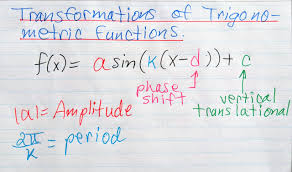 Transformations of Trigono-
metric Functions.
f(x) = a sin(k(x-d)) + c
phase shift
vertical translational
|a| = Amplitude
2π/k = period